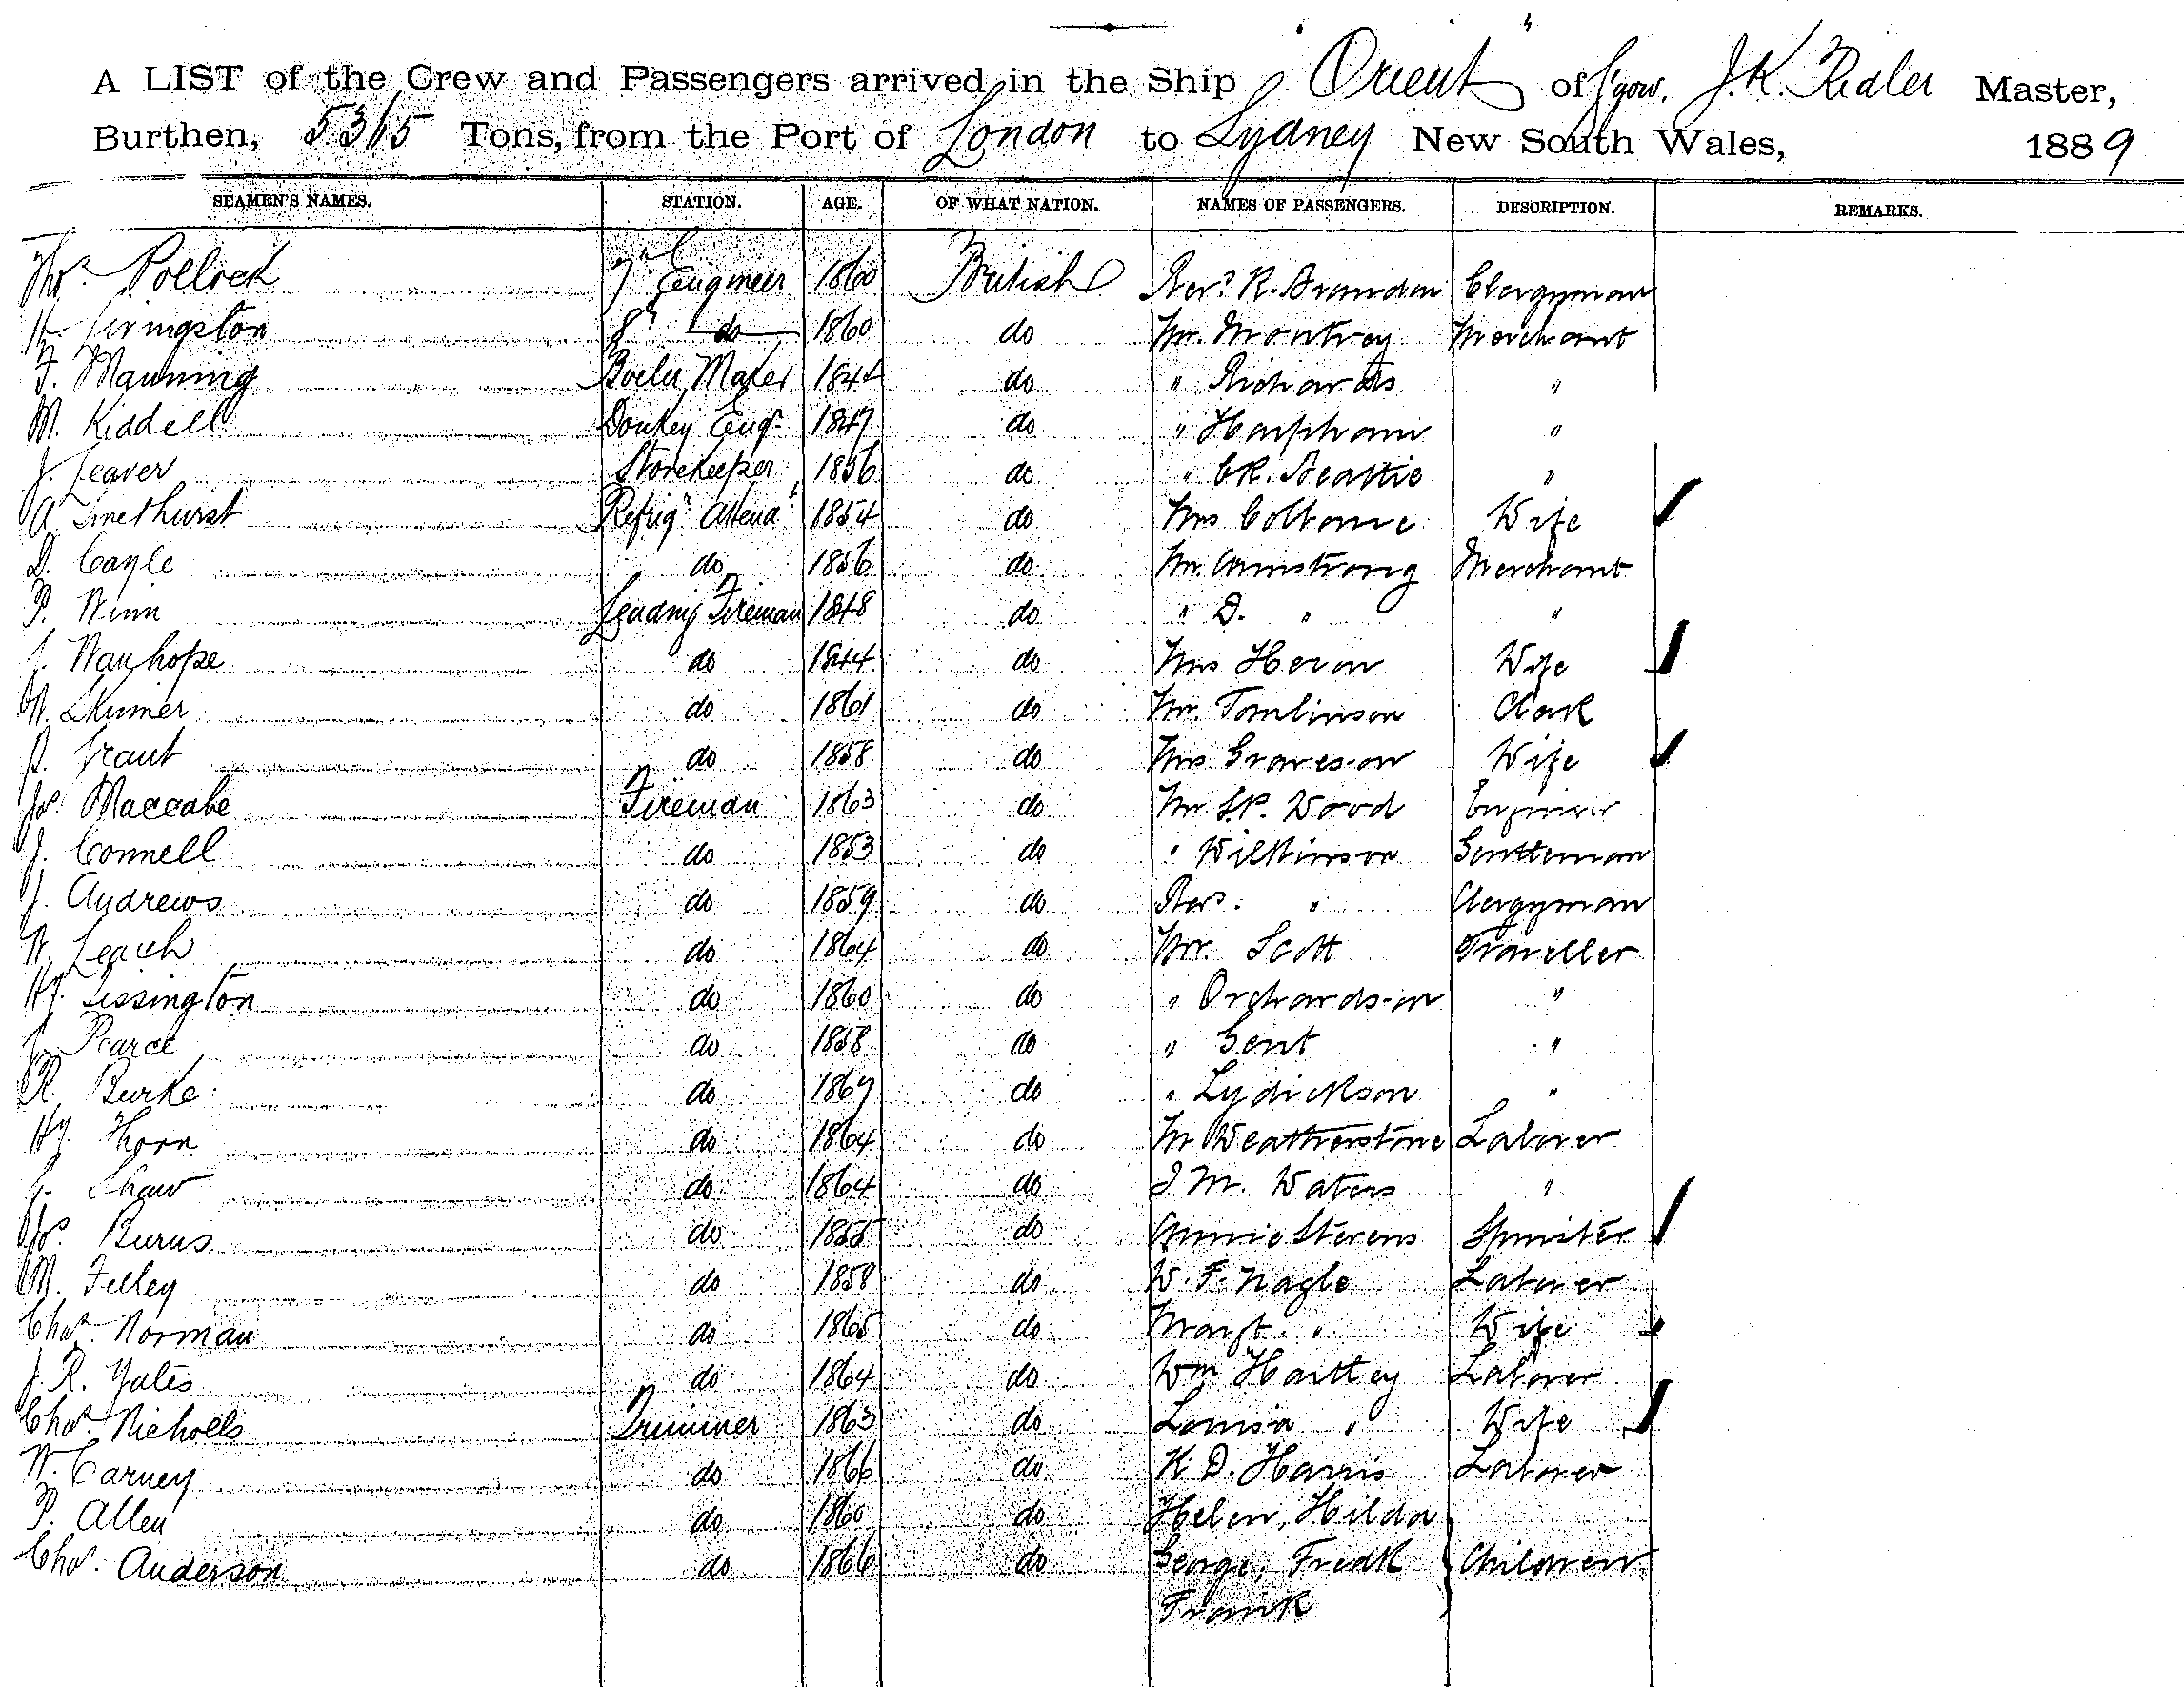 A LIST of the Crew and Passengers arrived in the Ship "Orient" of Sgow. J.K. Ridler Master,
Burthen, 5365 Tons, from the Port of London to Sydney New South Wales, 1889
SEAMEN'S NAMES. STATION. AGE. OF WHAT NATION. NAMES OF PASSENGERS. DESCRIPTION. REMARKS.
Thos. Pollock 7th Engineer 1860 British Revd. R. Brandon Clergyman
H. Livingston 8th do 1860 do Mr. Montrey Merchant
F. Manning Boiler Maker 1844 do " Richards "
M. Kiddell Donkey Engr 1847 do " Harpham "
J. Leaver Storekeeper 1856 do " CR. Beattie "
A. Smethurst Refrig. Attend. 1854 do Mrs Wife
D. Cayle do 1856 do Mr. Armstrong Merchant
P. Winn Leading Fireman 1848 do " D. " "
J. Wanhope do 1844 do Mrs Heron Wife
W. Skinner do 1861 do Mr. Tomlinson Clerk
P. Grant do 1858 do Mrs Graveson Wife
Jas. Maccabe Fireman 1863 do Mr Wood Engineer
J. Connell do 1853 do " Wilkinson Gentleman
J. Andrews do 1859 do Revd. " Clergyman
W. Leach do 1864 do Mr. Scott Traveller
Hy. Lissington do 1860 do " Orchardson "
J. Pearce do 1858 do " Gent "
R. Burke do 1867 do " Lydickson "
Hy. Thorn do 1864 do Mr Weatherstone Laborer
G. Shaw do 1864 do J M. Waters "
Jos. Burns do 1855 do Annie Stevens Spinster
M. Felley do 1858 do W. F. Nagle Laborer
Chas. Norman do 1865 do Margt. " Wife
J. R. Yates do 1864 do Wm Hartley Laborer
Chas. Nicholls Trimmer 1863 do Louisa " Wife
W. Carney do 1866 do H. D. Harris Laborer
P. Allen do 1860 do Helen, Hilda
Chas. Anderson do 1866 do George, Fredk Children
Frank